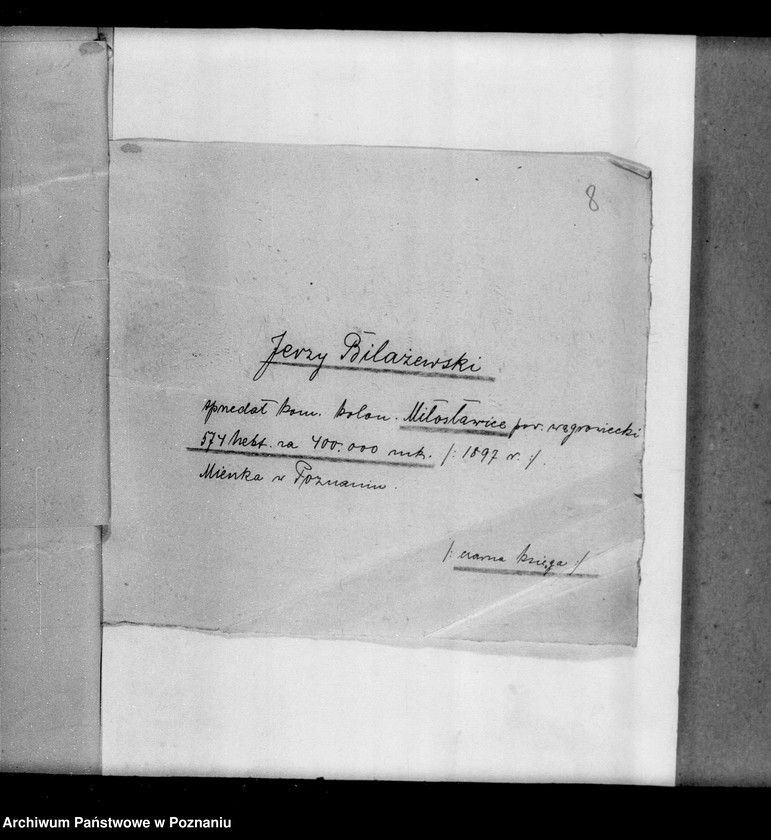 8
Jerzy Bilażewski
sprzedał kom. kolon. Miłosławice pow. wągrowiecki
574 hekt. za 400.000 mk. /: 1897 r. :/.
Mieszka w Poznaniu.
/: czarna księga :/
Archiwum Państwowe w Poznaniu